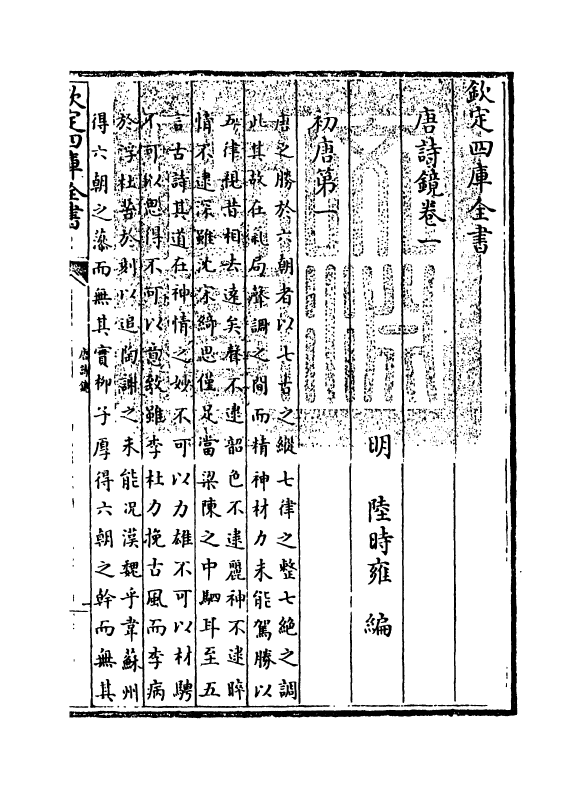 欽定四庫全書
唐詩鏡卷一
明 陸時雍 編
初唐第一
唐之勝於六朝者以七古之縱七律之整七絶之調
此其故在氣局聲調之間而精神材力未能駕勝以
五律視昔相去遠矣聲不逮韶色不逮麗神不逮晬
情不逮深雖沈宋綺思僅足當梁陳之中駟耳至五
言古詩其道在神情之妙不可以力雄不可以材騁
不可以思得不可以意致雖李杜力挽古風而李病
於浮杜苦於刻以追陶謝之未能况漢魏乎韋蘇州
得六朝之藻而無其實柳子厚得六朝之幹而無其
欽定四庫全書
唐詩鏡